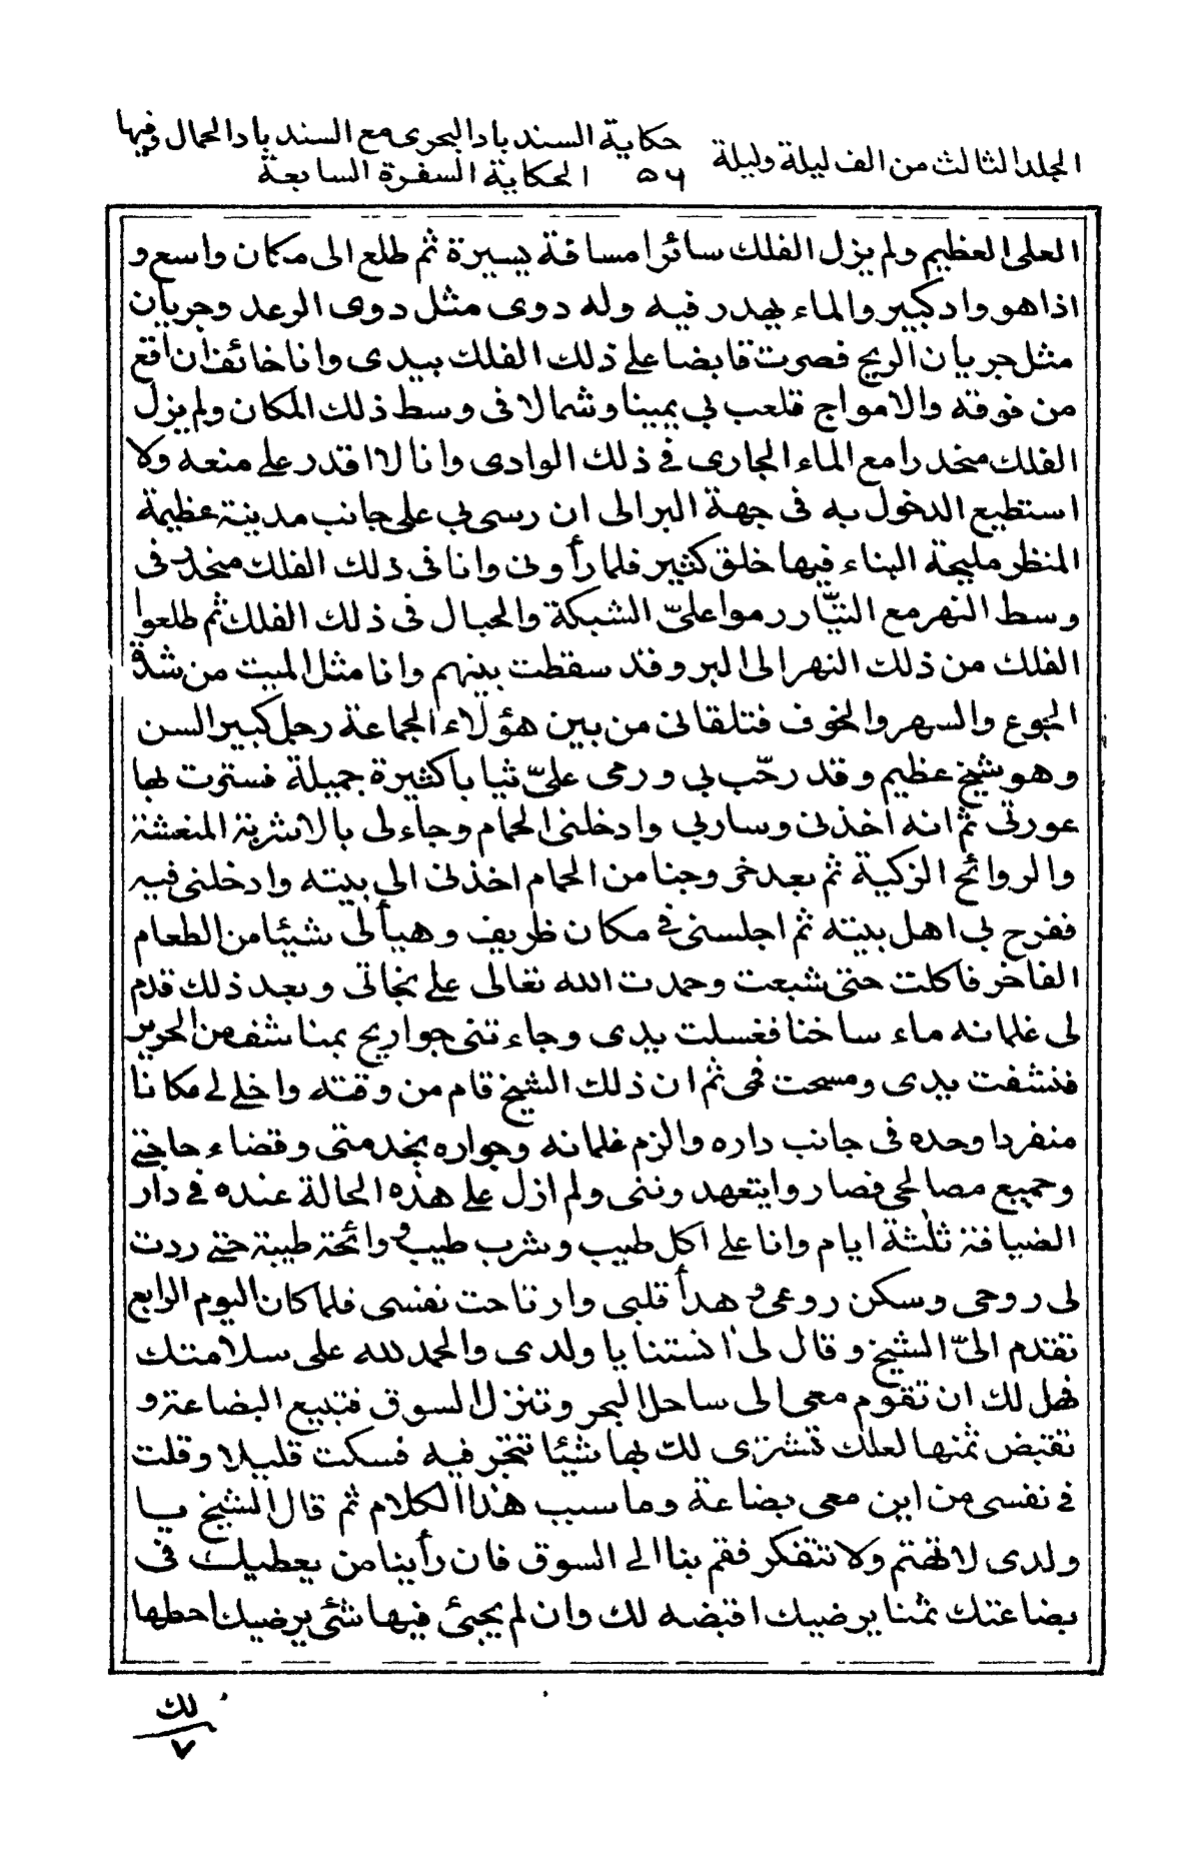 المجلد الثالث من الف ليلة وليلة ٥٦ حكاية السند باد البحرى مع السند باد الحمال وفيها
الحكاية السفرة السابعة
العلى العظيم ولم يزل الفلك سائرا مسافة يسيرة ثم طلع الى مكان واسع و
اذا هو واد كبير والماء يهدر فيه وله دوى مثل دوى الرعد وجريان
مثل جريان الريح فصرت قابضا على ذلك الفلك بيدى وانا خائف ان اقع
من فوقه والامواج تلعب بي يمينا وشمالا فى وسط ذلك المكان ولم يزل
الفلك منحدرا مع الماء الجارى فى ذلك الوادى وانا لا اقدر على منعه ولا
استطيع الدخول به فى جهة البر الى ان رسى بي على جانب مدينة عظيمة
المنظر مليحة البناء فيها خلق كثير فلما رأونى وانا فى ذلك الفلك منحدر فى
وسط النهر مع التيّار رموا علىّ الشبكة والحبال فى ذلك الفلك ثم طلعوا
الفلك من ذلك النهر الى البر وقد سقطت بينهم وانا مثل الميت من شدة
الجوع والسهر والخوف فتلقانى من بين هؤلاء الجماعة رجل كبير السن
وهو شيخ عظيم وقد رحّب بي ورمى علىّ ثيابا كثيرة جميلة فسترت بها
عورتى ثم انه اخذنى وسار بي وادخلنى الحمام وجاء لى بالاشربة المنعشة
والروائح الزكية ثم بعد خروجنا من الحمام اخذنى الى بيته وادخلنى فيه
ففرح بى اهل بيته ثم اجلسنى فى مكان ظريف وهيأ لى شيئا من الطعام
الفاخر فاكلت حتى شبعت وحمدت الله تعالى على نجاتى وبعد ذلك قدم
لى غلمانه ماء ساخنا فغسلت يدى وجاءتنى جواريه بمناشف من الحرير
فنشفت يدى ومسحت فمى ثم ان ذلك الشيخ قام من وقته واخلى لى مكانا
منفردا وحده فى جانب داره والزم غلمانه وجواره بخدمتى وقضاء حاجتى
وجميع مصالحى فصاروا يتعهدوننى ولم ازل على هذه الحالة عنده فى دار
الضيافة ثلثة ايام وانا على اكل طيب وشرب طيب ورائحة طيبة حتى ردت
لى روحى وسكن روعى وهدأ قلبى وارتاحت نفسى فلما كان اليوم الرابع
تقدم الىّ الشيخ وقال لى انستنا يا ولدى والحمد لله على سلامتك
فهل لك ان تقوم معى الى ساحل البحر وتنزل السوق فتبيع البضاعة و
تقبض ثمنها لعلك تشترى لك بها شيئا تتجر فيه فسكت قليلا وقلت
فى نفسى من اين معى بضاعة وما سبب هذا الكلام ثم قال الشيخ يا
ولدى لا تهتم ولا تتفكر فقم بنا الى السوق فان رأينا من يعطيك فى
بضاعتك ثمنا يرضيك اقبضه لك وان لم يجئ فيها شئ يرضيك احطها
لك
٧